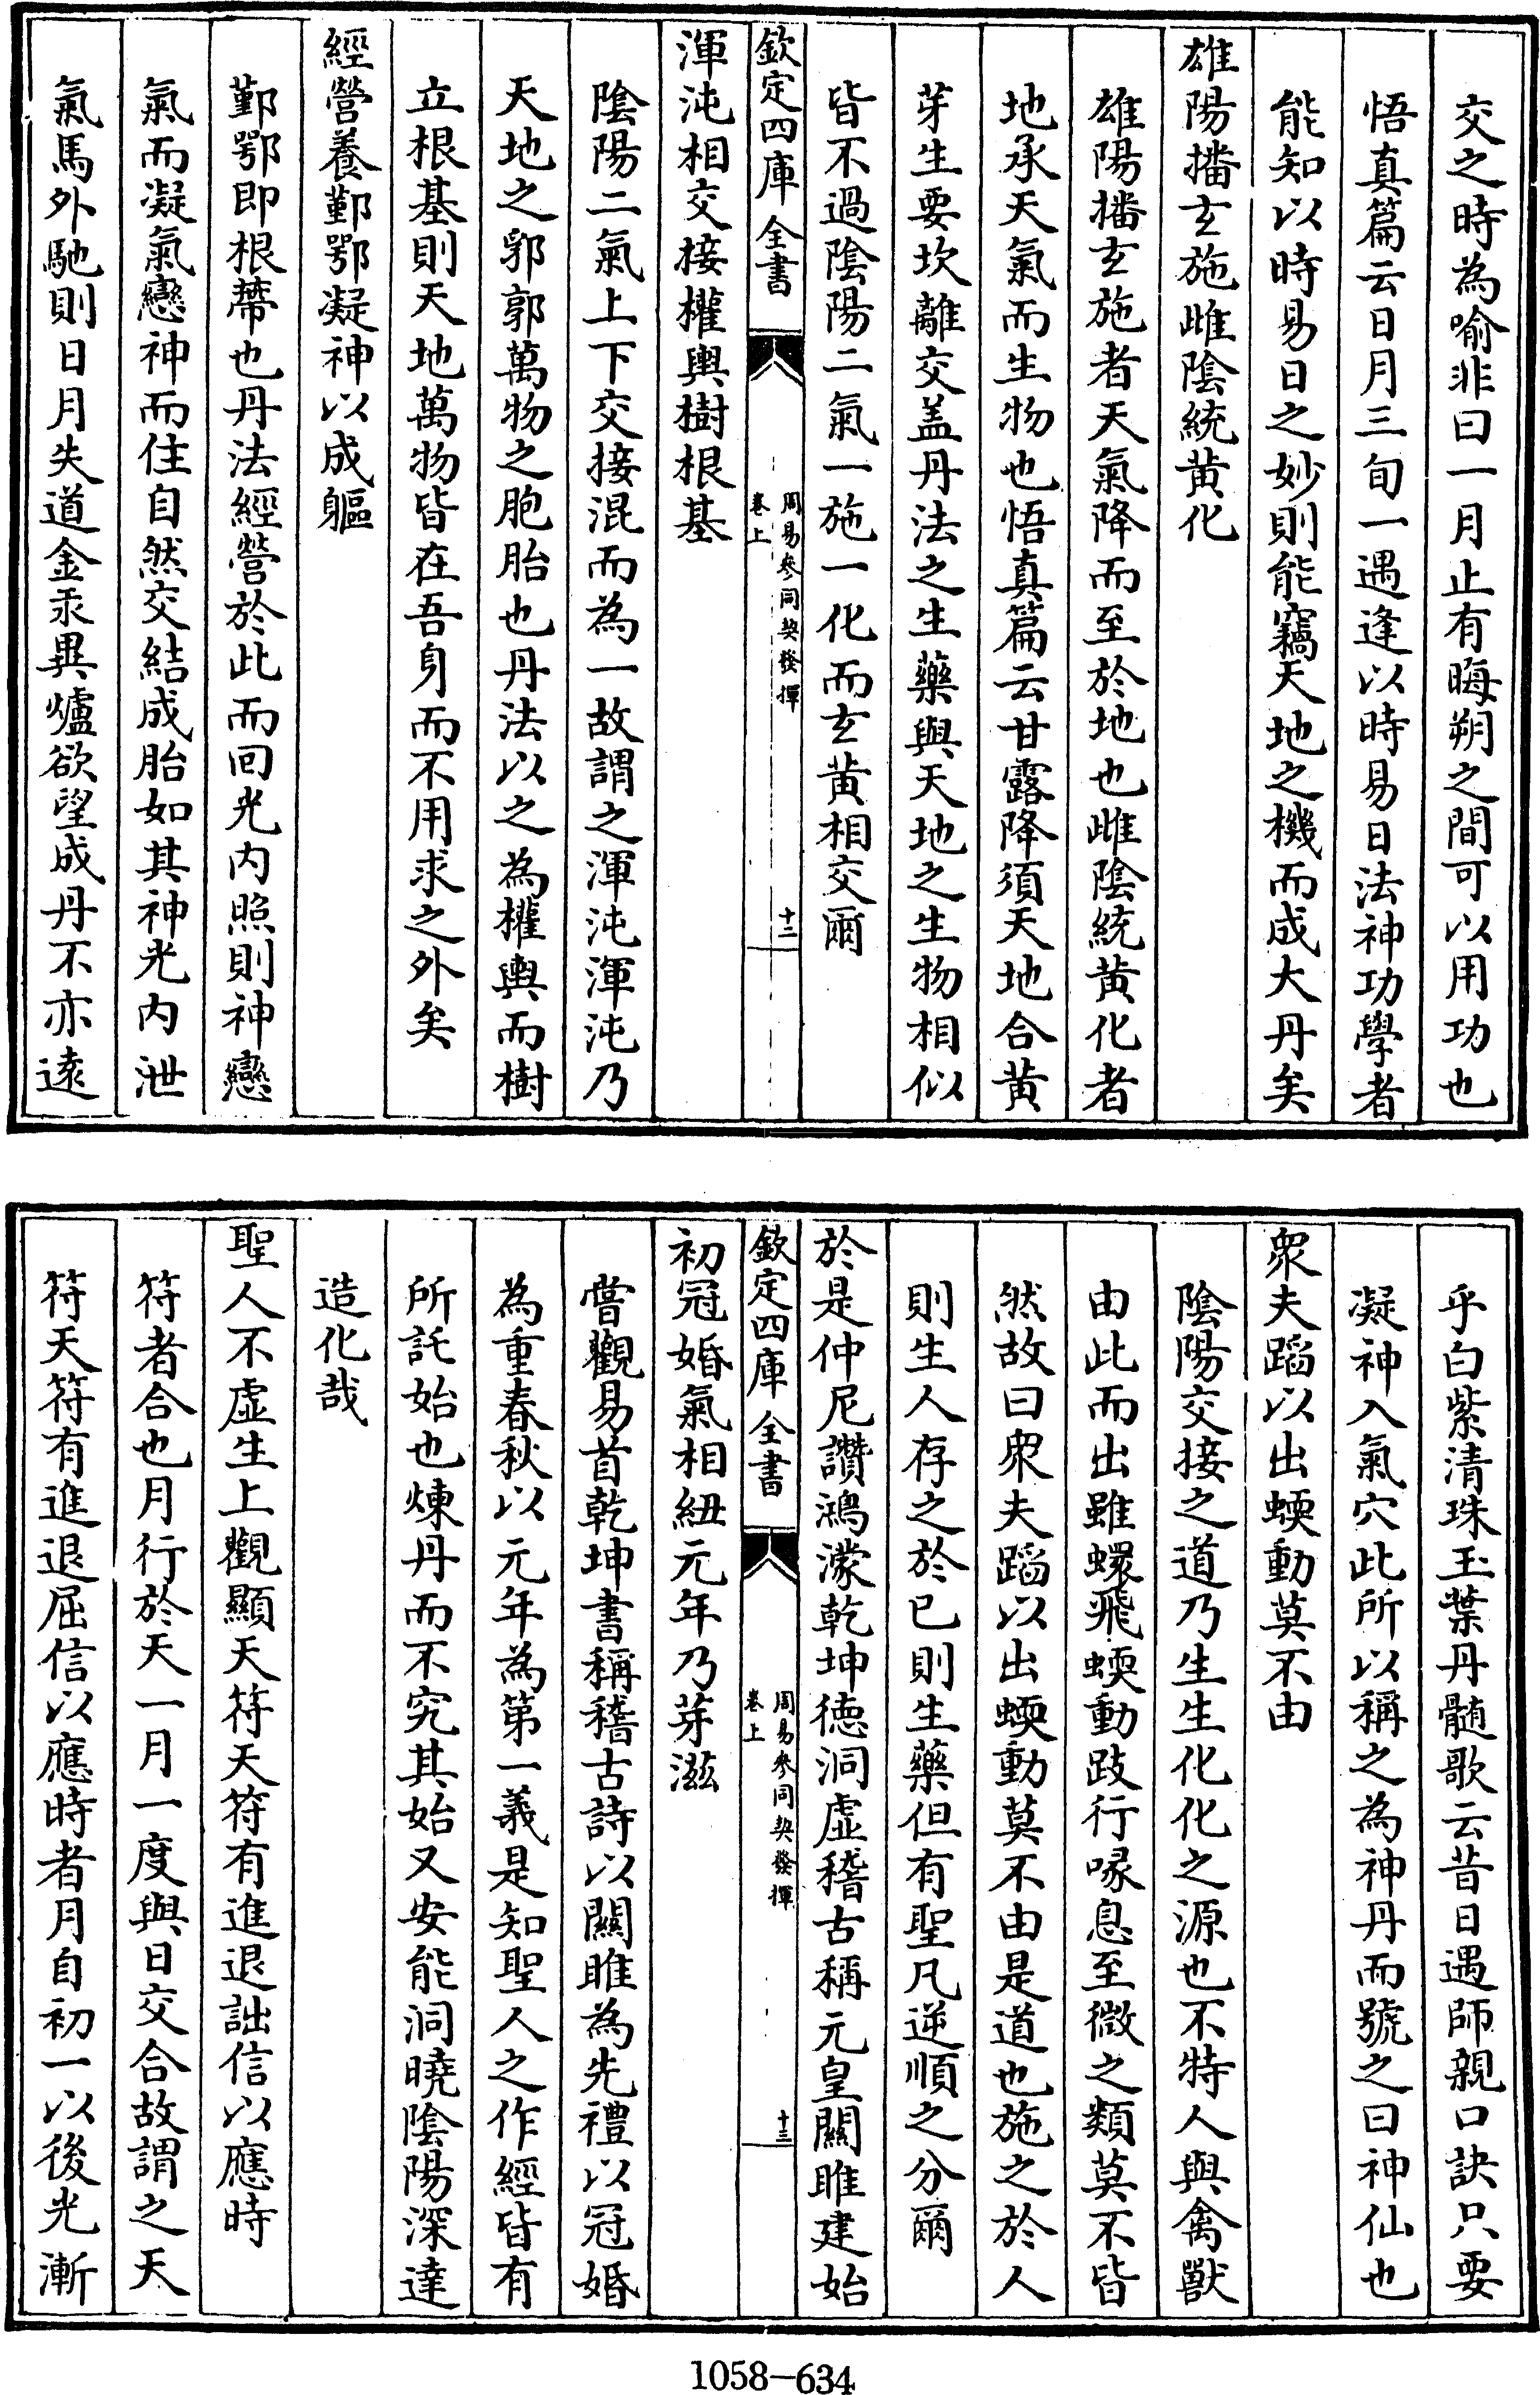 交之時為喻非曰一月止有晦朔之間可以用功也
悟真篇云日月三旬一遇逢以時易日法神功學者
能知以時易日之妙則能竊天地之機而成大丹矣
雄陽播玄施雌陰統黄化
雄陽播玄施者天氣降而至於地也雌陰統黄化者
地承天氣而生物也悟真篇云甘露降須天地合黄
芽生要坎離交盖丹法之生藥與天地之生物相似
皆不過陰陽二氣一施一化而玄黄相交爾
欽定四庫全書
周易參同契發揮
卷上
十二
渾沌相交接權輿樹根基
陰陽二氣上下交接混而為一故謂之渾沌渾沌乃
天地之郛郭萬物之胞胎也丹法以之為權輿而樹
立根基則天地萬物皆在吾身而不用求之外矣
經營養鄞鄂凝神以成軀
鄞鄂即根蔕也丹法經營於此而回光内照則神戀
氣而凝氣戀神而住自然交結成胎如其神光内泄
氣馬外馳則日月失道金汞異爐欲望成丹不亦遠
乎白紫清珠玉葉丹髓歌云昔日遇師親口訣只要
凝神入氣穴此所以稱之為神丹而號之曰神仙也
衆夫蹈以出蝡動莫不由
陰陽交接之道乃生生化化之源也不特人與禽獸
由此而出雖蠉飛蝡動跂行喙息至微之類莫不皆
然故曰衆夫蹈以出蝡動莫不由是道也施之於人
則生人存之於已則生藥但有聖凡逆順之分爾
於是仲尼讚鴻濛乾坤德洞虛稽古稱元皇關雎建始
欽定四庫全書
周易參同契發揮
卷上
十三
初冠婚氣相紐元年乃芽滋
嘗觀易首乾坤書稱稽古詩以關雎為先禮以冠婚
為重春秋以元年為第一義是知聖人之作經皆有
所託始也煉丹而不究其始又安能洞曉陰陽深達
造化哉
聖人不虛生上觀顯天符天符有進退詘信以應時
符者合也月行於天一月一度與日交合故謂之天
符天符有進退屈信以應時者月自初一以後光漸
1058-634